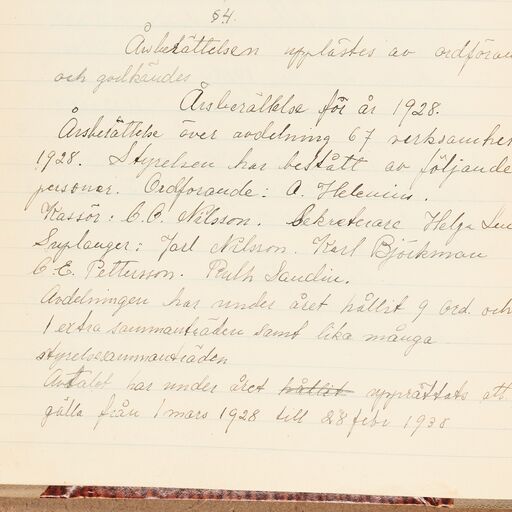 §4.
Årsberättelsen upplästes av ordföran
och godkändes
Årsberättelse för år 1928.
Årsberättelse över avdelning 67 verksamhet
1928. Styrelsen har bestått av följande
personer. Ordforande: A. Helenius.
Kassör: C.O. Nilsson. Sekreterare Helga
Suplanger: Jarl Nilsson. Karl Björkman
C.E. Pettersson. Ruth Sandin.
Avdelningen har under året hållit 9 ord. och
1 extra sammanträden samt lika många
styrelsesammanträden
Avtalet har under året hållit upprättats att
gälla från 1 mars 1928 till 28 febr 1930